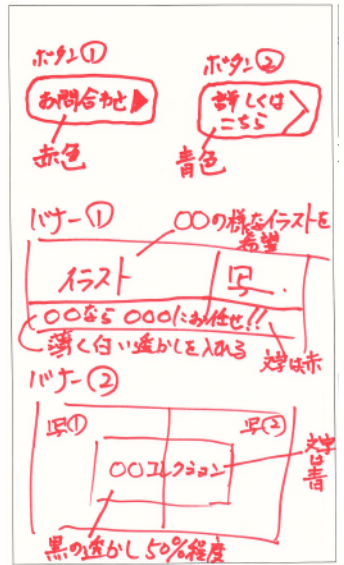 ボタン①
お問合わせ▶
赤色
ボタン②
詳しくは
こちら
青色
バナー①
○○の様なイラストを
希望
イラスト
写.
○○なら ○○○にお任せ!!
薄く白い透かしを入れる
文字は赤
バナー②
写①
写②
○○コレクション
文字
は
青
黒の透かし50%程度